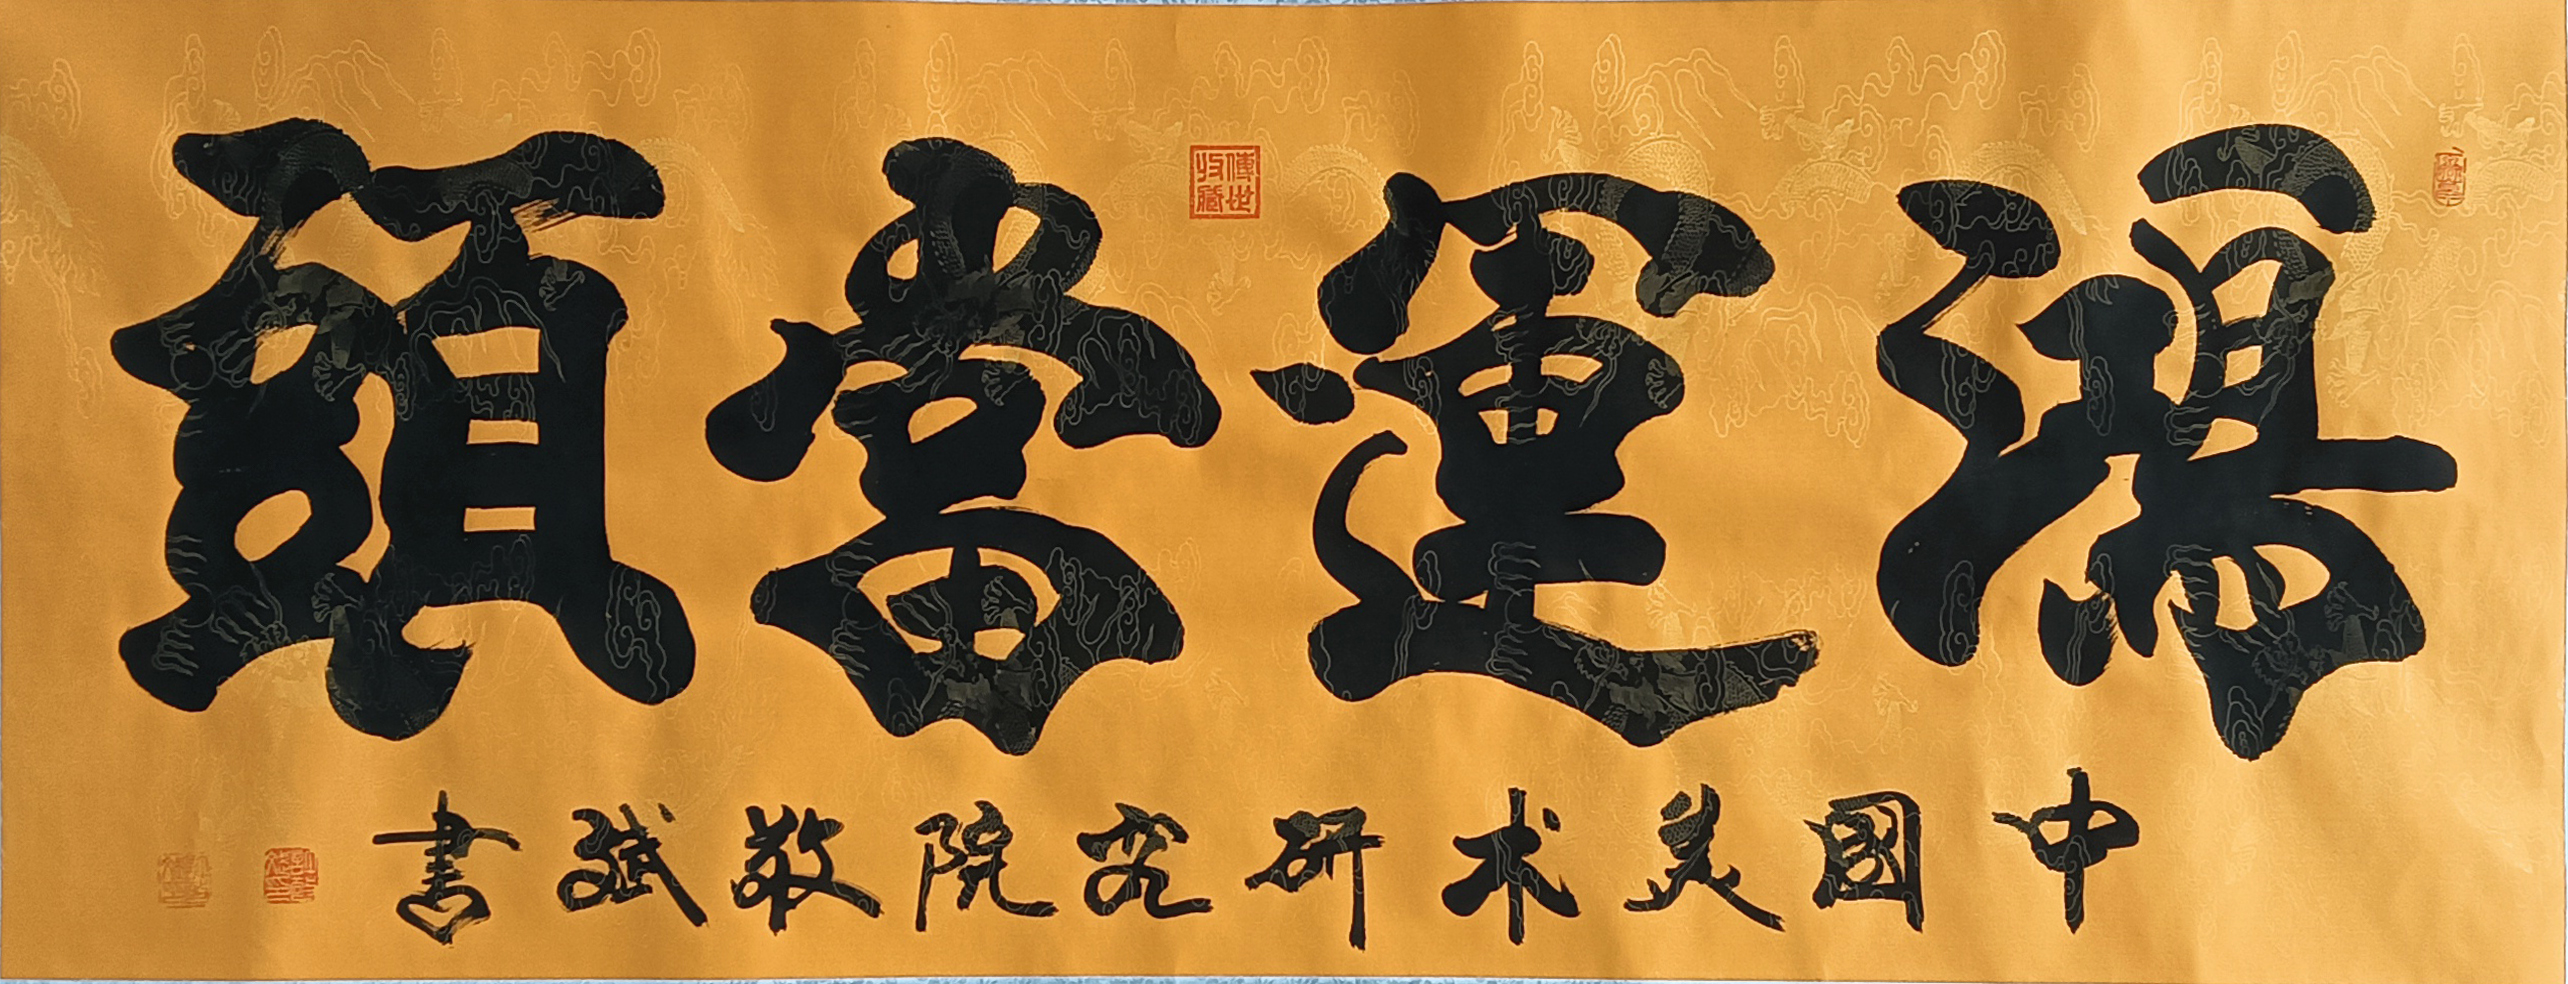 鴻運當頭
傳世收藏
中國美术研究院敬斌書